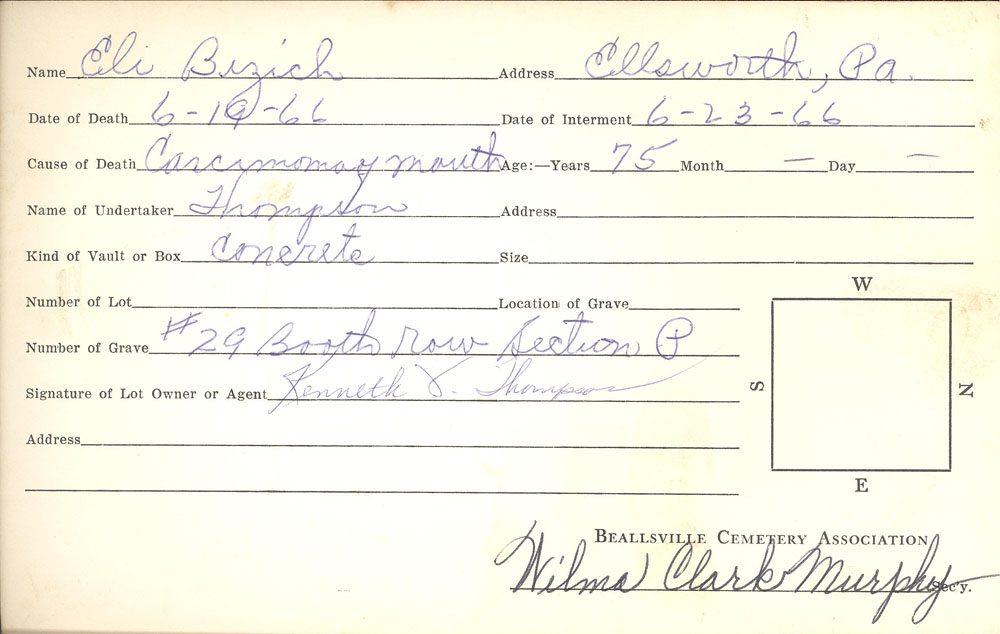 Name Eli Bizich Address Ellsworth, Pa.
Date of Death 6-19-66 Date of Interment 6-23-66
Cause of Death Carcinoma of mouth Age:—Years 75 Month — Day —
Name of Undertaker Thompson Address
Kind of Vault or Box Concrete Size
W
Number of Lot Location of Grave
Number of Grave #29 Booth row Section P
S N
Signature of Lot Owner or Agent Kenneth J. Thompson
Address
E
BEALLSVILLE CEMETERY ASSOCIATION
Wilma Clark Murphy Sec'y.